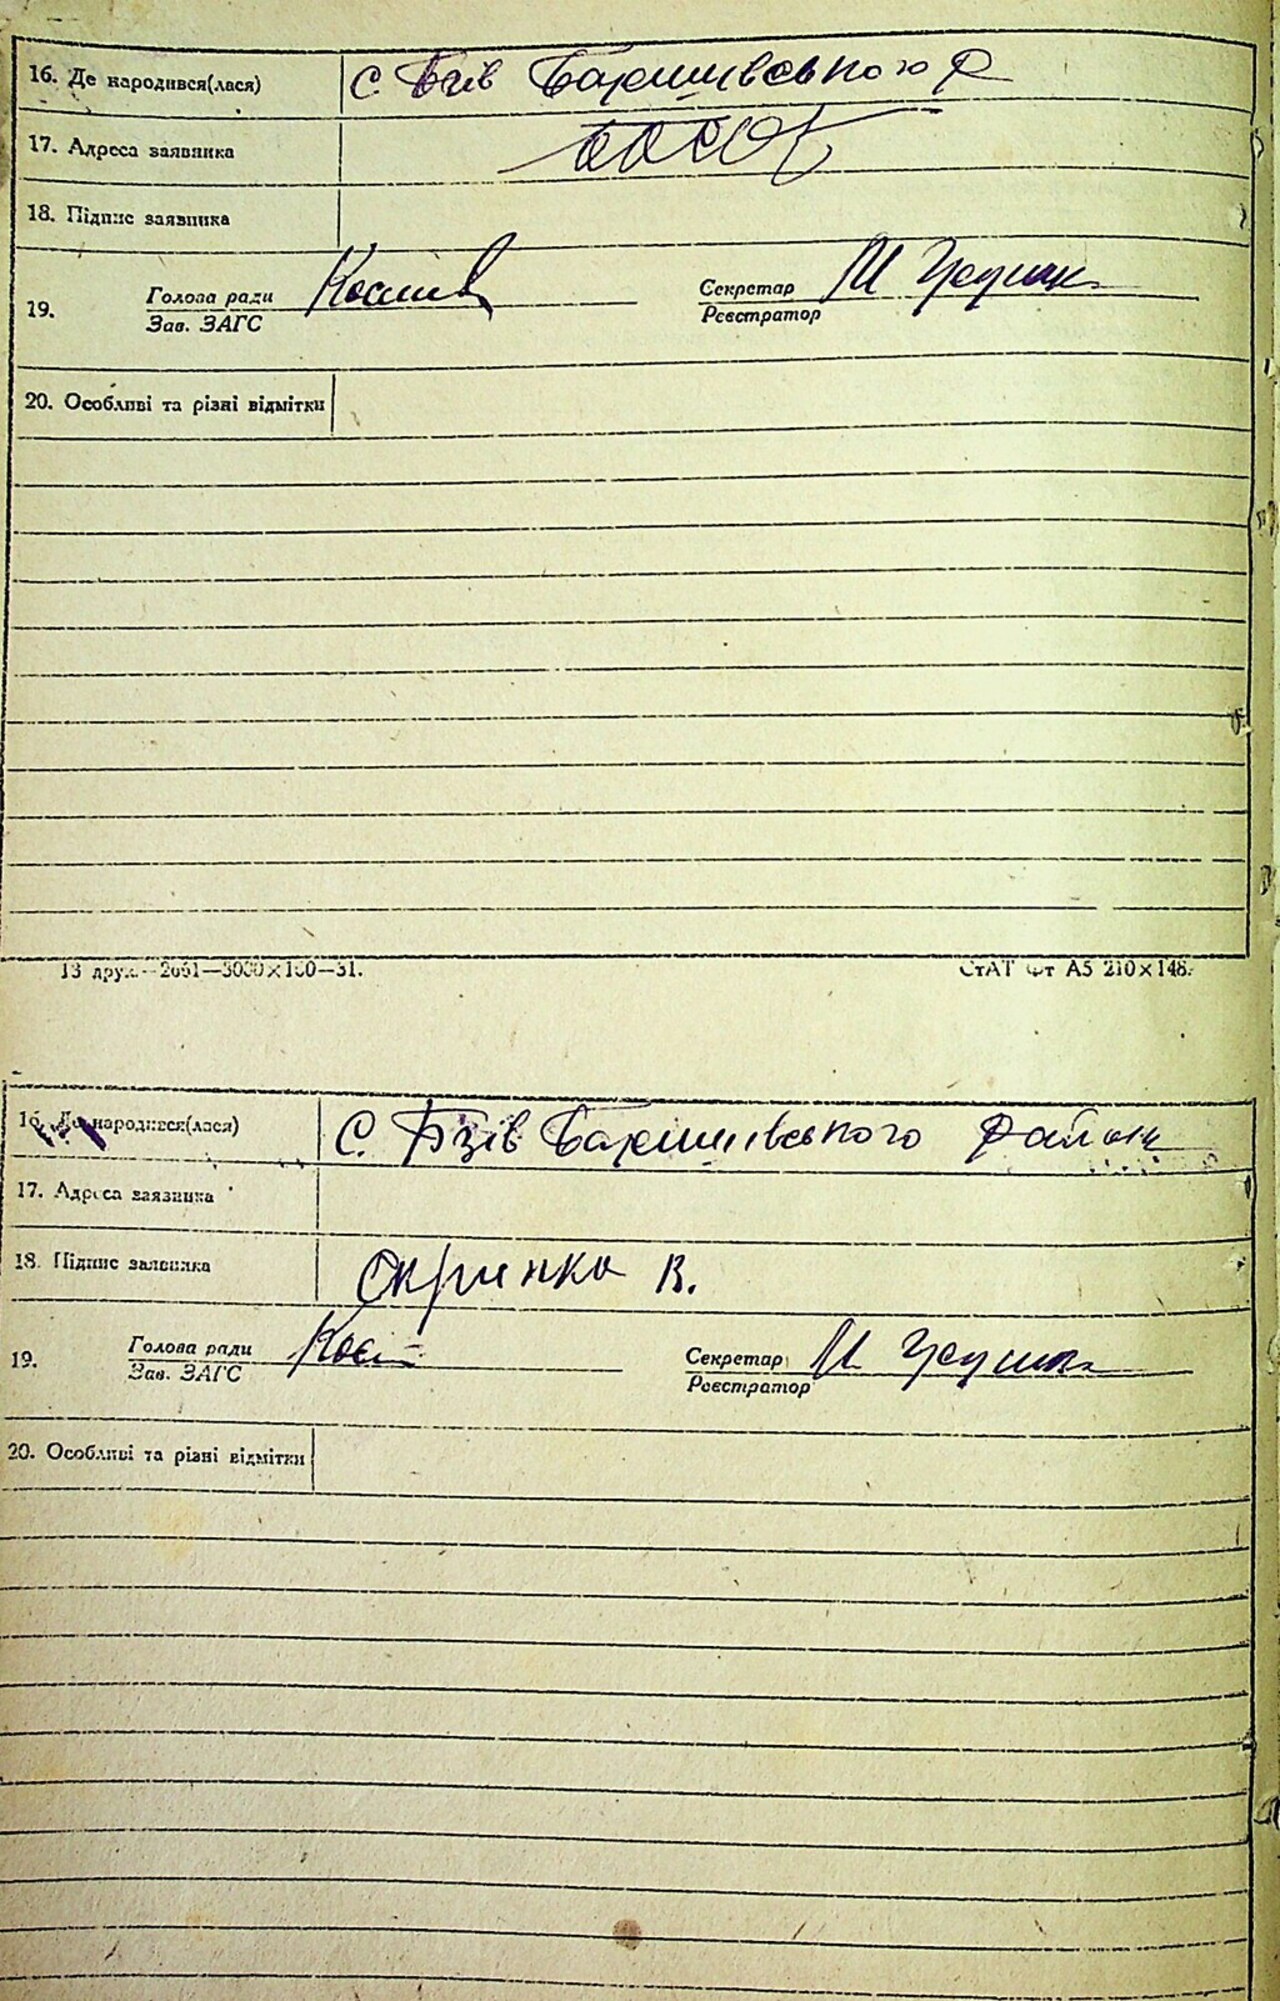 16. Де народився(лася) с. Бзів Баришівського Р
17. Адреса заявника
18. Підпис заявника
19. Голова ради Секретар
Зав. ЗАГС Реєстратор
20. Особливі та різні відмітки
13 друк.—2661—3000×100—31. СтАТ Фт А5 210×148.
16. Де народився(лася) С. Бзів Баришівського району
17. Адреса заявника
18. Підпис заявника Скрипка В.
19. Голова ради Секретар
Зав. ЗАГС Реєстратор
20. Особливі та різні відмітки